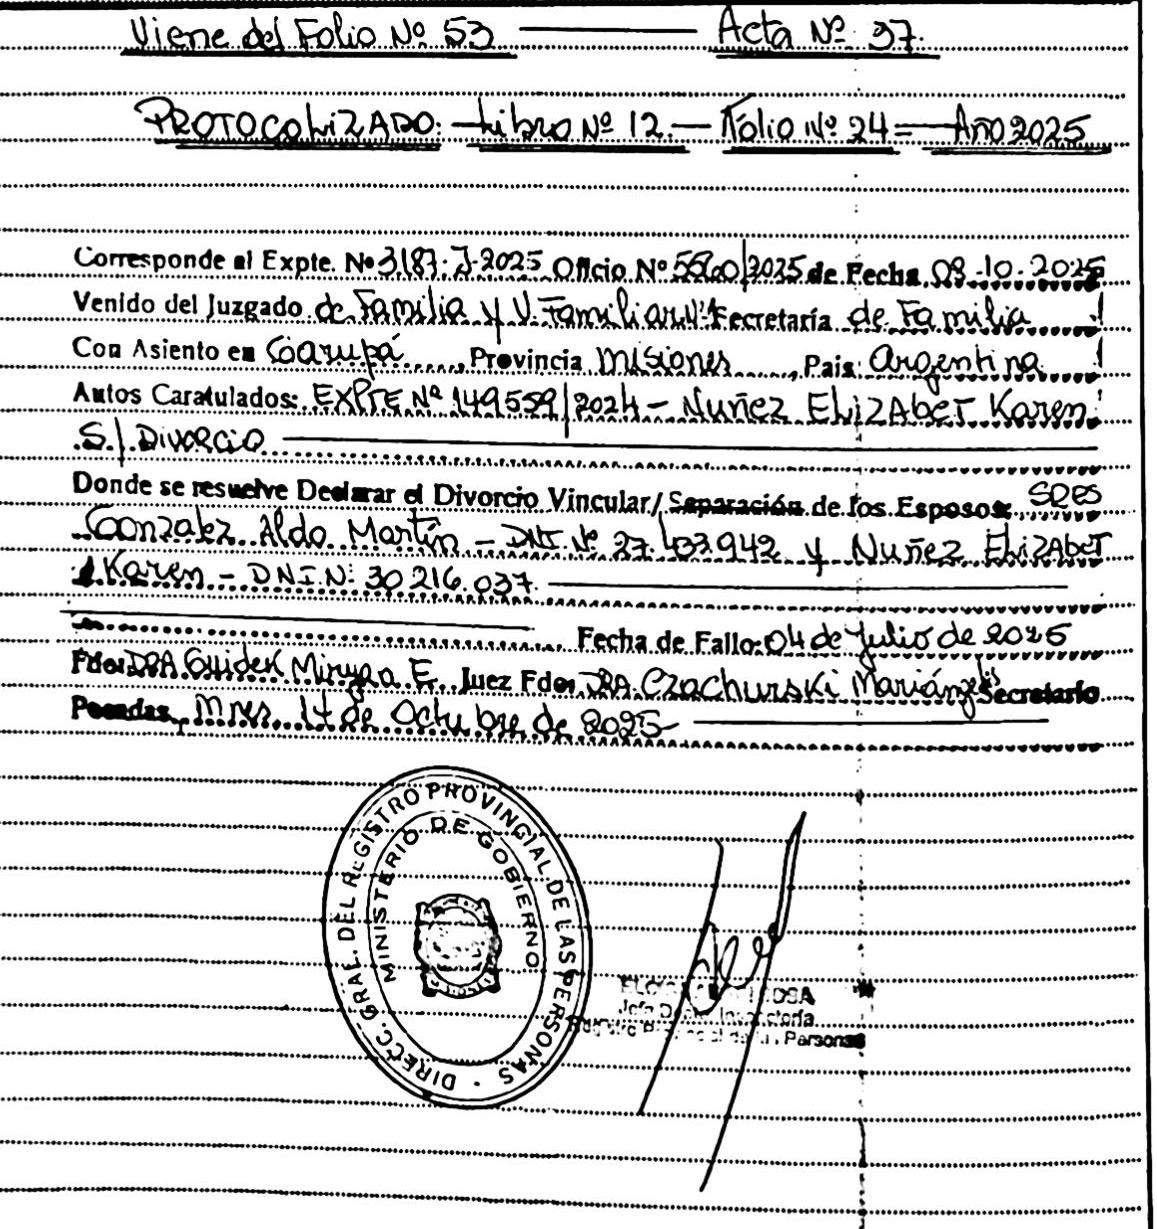 Viene del Folio Nº 53 — Acta Nº 37.
PROTOCOLIZADO: — Libro Nº 12. — Folio Nº 24 = — Año 2025
Corresponde al Expte. Nº 3187-J-2025 Oficio Nº 5560/2025 de Fecha 09-10-2025
Venido del Juzgado de Familia y V. Familiar Nº 1 Secretaría de Familia
Con Asiento en Garupá, Provincia Misiones, Pais: Argentina
Autos Caratulados: EXPTE Nº 149559/2024 — Nuñez ELIZABET Karen
S./ Divorcio
Donde se resuelve Declarar el Divorcio Vincular/Separación de los Esposos: SRES
Gonzalez Aldo Martín — DNI Nº 27.433942 y Nuñez ELIZABET
Karen — DNI.Nº 30216.037.
Fecha de Fallo: 04 de Julio de 2025
Fdo: DRA Guider E. Juez Fdo: DRA. Czachurski Secretario
Posadas, Mnes. 14 de Octubre de 2025
DIRECC. GRAL. DEL REGISTRO PROVINCIAL DE LAS PERSONAS
MINISTERIO DE GOBIERNO
Personas